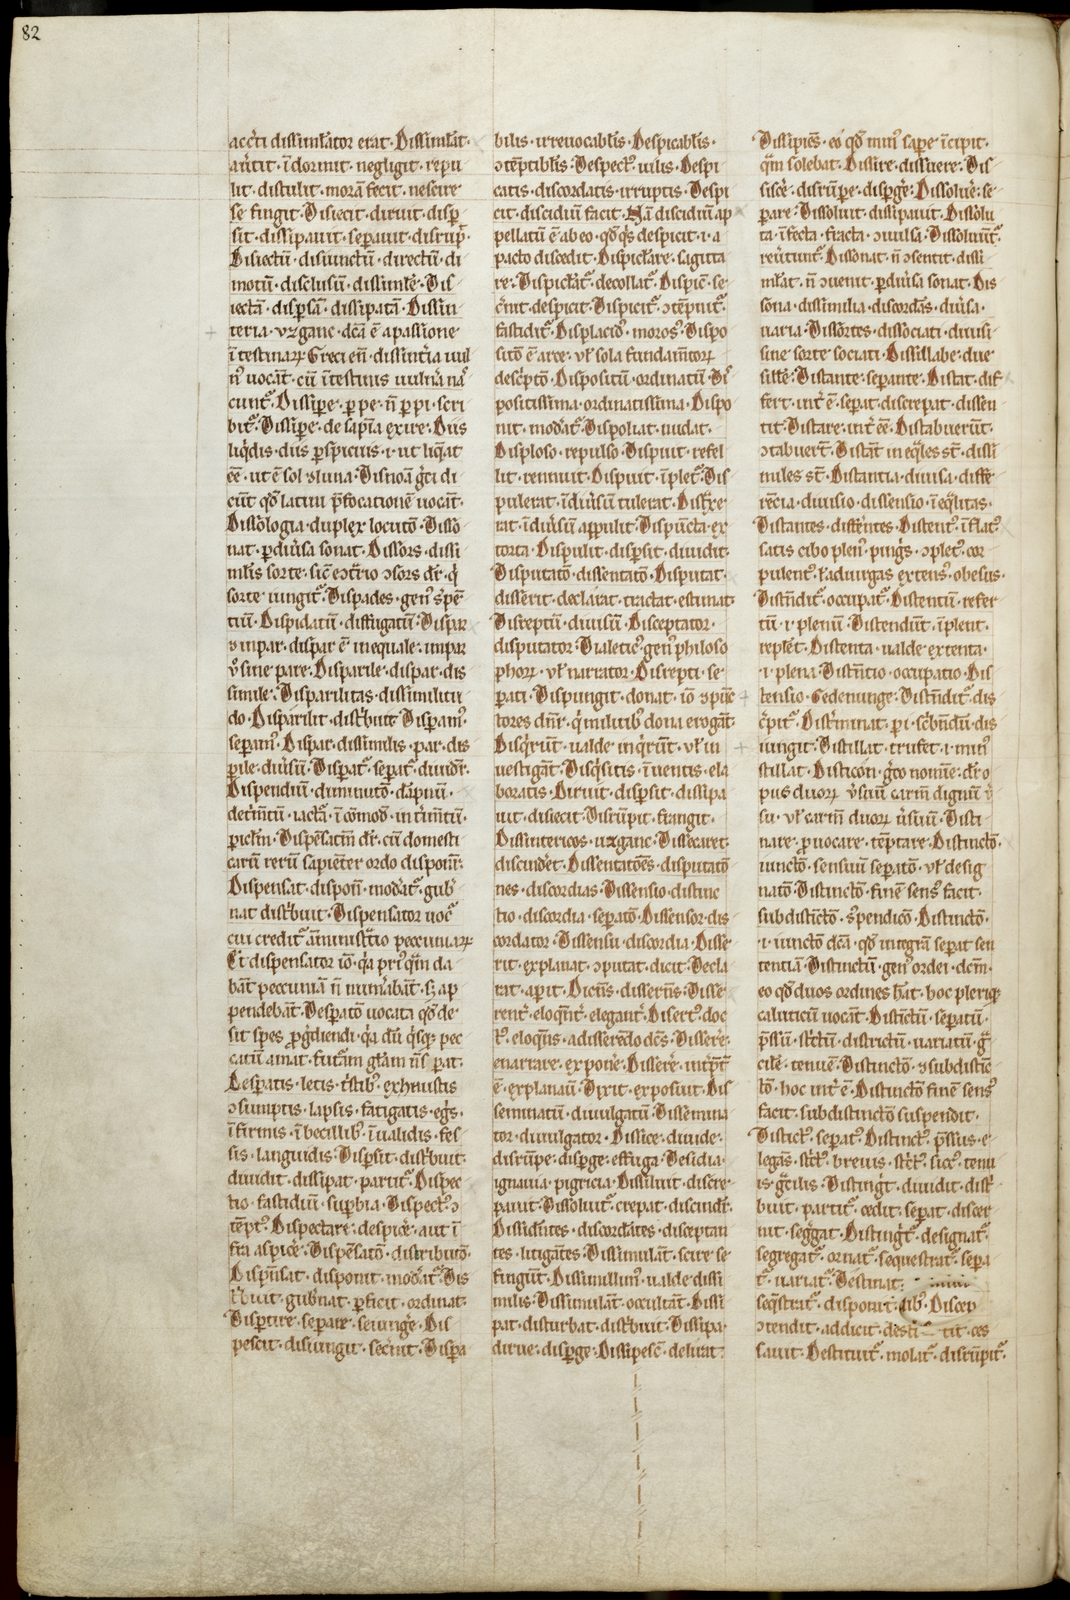 82
accti dissimlator erat · Dissimlat ·
autit · īdormit · negligit · repu
lit · distulit · morā fecit · nescire
se fingit · Disiecit · diruit · disꝑ
sit · dissipauit · seꝑauit · disrup̄ ·
Disiectū · disiunctū · directū · di
motū · disclusū · dissimile · Dis
iectā · disꝑsā · dissipatā · Dissin
teria · dc̄a ē a passione
ītestinaꝝ Greci en̄ · dissint̄ia uul
n᾽ uocāt · cū ītestinis uulna nā
cunt᷑ · Dissipe · ꝑ pe · n̄ ꝑ pi · scri
bit᷑ · Dissipe · de sapīa exire · Diis
liqdis · diis ꝑspicuis · i · ut liqat
eē · ut ē sol luna · Disnoā gci di
cūt qđ latini p̄focationē uocāt ·
Dissologia · duplex locutō · Disso
nat · ꝑdiusa sonat · Dissors · dissi
mlis sorte · sic ē ɔt̄rio ɔsors dr̄ · q
sorte iungit᷑ · Dispades · gen᾽ sꝑē
tiū · Dispidatū · diffugatū · Dispar
impar · dispar ē inequale · impar
u sine pare · Disparile · dispar · dis
simile · Disparilitas · dissimilitu
do · Disparilit · distribuit Disꝑam᾽
seꝑam᾽ · Dispar · dissimilis · par · dis
ꝑile · diuisū · Disꝑat᷑ · seꝑat᷑ · diuidit᷑ ·
Dispendiū · diminutō · dāpnū ·
det̄mtū · iactā · īcōmod · int̄imtū ·
picl̄m · Dispēsatm̄ dr̄ · cū domesti
carū rerū sapiēter ordo disponit᷑ ·
Dispensat · dispon̄ · modat᷑ · gub
nat distribuit · Dispensator uocat᷑
cui credit᷑ āministratio pecuniaꝝ
Et dispensator iō · qa pri᾽ qm da
bāt pecuniā n̄ numabāt · sꝫ ap
pendebāt · Desꝑatō uocata qđ de
sit spes ꝓgdiendi · qa dū qsqꝫ pec
catū amat · futam glām n̄ sꝑat ·
Desꝑatis · letis tstib᾽ · exhaustis
ɔsumptis · lapsis · fatigatis · egs ·
īfirmis · ībecillib᾽ · īualidis · fes
sis · languidis · Disꝑsit · distribuit ·
diuidit · dissipat · partit᷑ · Dispec
tio · fastidiū · suꝑbia · Dispect᾽ · ɔ
tēpt᾽ · Dispectare · despice · aut ī
fra aspice · Dispēsatō · distributō ·
Dispn̄sat · disponit · modat᷑ Dis
tribuit · gubnat · ꝑficit · ordinat ·
Disꝑtire · seꝑare · seiunge · Dis
pescit · disiungit · secnit · Dispa
bilis · irreuocabilis · Despicabilis ·
ɔtēptibilis · Despect᾽ · uilis · Despi
catis · discordatis · irruptis · Despi
cit · discidiū facit · Nā discidiū ap
pellatū ē ab eo · qđ qs despicit · i · a
pacto discedit · Dispiclare · sagitta
re · Dispiclat᷑ · decollat᷑ · Dispic̄ · se
cnit · despicit · Dispicit᷑ · ɔtēpnit᷑ ·
fastidit᷑ · Displacid᾽ · moros᾽ · Dispo
sitō ē aree · ul sola fundamtoꝝ
descptō · Dispositū · ordinatū · Di
positissima · ordinatissima · Dispo
nit · modat᷑ · Dispoliat · nudat ·
Disploso · repulso · Dispuit · refel
lit · rennuit · Dispuit · īplet᷑ · Dis
pulerat · īdiuisū tulerat · Disꝑxe
rat · īdiuisū aꝑpulit · Dispūcta · ex
torta · Dispulit · disꝑsit · diuidit ·
Disputatō · dissentatō · Disputat ·
disserit · declarat · tractat · estimat ·
Disreptū · diuisū · Disceptator ·
disputator · Dialetic᾽ · gen᾽ philoso
phoꝝ · ul narrator · Disrepti · se
ꝑati · Dispungit · donat · iō ɔpūc
tores dnr̄ · q militib᾽ dona erogāt ·
Disqrūt · ualde inqrūt · ul in
uestigāt · Disqsitis · īuentis · ela
boratis · Diruit · disꝑsit · dissipa
uit · disiecit · Disrūpit · frangit ·
Dissintericos · Dissecaret ·
discindet · Dissentatōes · disputatō
nes · discordias · Dissensio · distinc
tio · discordia · seꝑatō · Dissensor · dis
cordator · Dissensu · discordia · Disse
rit · explanat · ɔputat · dicit · Decla
rat · apit · Dicn̄s · dissern̄s · Disse
rent᷑ · eloqnt᷑ · elegant᷑ · Disert᾽ · doc
t᾽ · eloqn̄s · adisserēdo dcs · Dissere ·
enarrare · expone · Dissere · intptat᷑
ē · explanaū · Dixit · exposuit · Dis
seminatū · diuulgatū · Dissemina
tor · diuulgator · Dissice · diuide ·
disrūpe · disꝑge · effuga · Desidia ·
ignauia · pigricia · Dissiluit · discre
pauit · Dissoluit᷑ · crepat · discindit᷑ ·
Dissidn̄tes · discordātes · disceptan
tes · litigātes · Dissimulāt · scire se
fingūt · Dissimillim᾽ · ualde dissi
milis · Dissimulāt · occultāt · Dissi
pat · disturbat · distribuit · Dissipa ·
dirue · disꝑge · Dissipescē · delirat ·
Dissipies · eo qđ min᾽ sape · īcipit ·
qm solebat · Dissire · dissuere · Dis
sisce · disrūpe · disꝑge · Dissolue · se
ꝑare · Dissoluit · dissipauit · Dissolu
ta · īfecta · fracta · ɔuulsa · Dissoluūt᷑ ·
reutunt᷑ · Dissonat · n̄ ɔsentit · dissi
mlat · n̄ ɔuenit · ꝑdiuisa sonat · Dis
sona · dissimilia · discordās · diuisa ·
uaria · Dissortes · dissociati · diuisi
sine sorte sociati · Dissillabe · due
sille · Distante · seꝑante · Distat · dif
fert · int ē · seꝑat · discrepat · dissen
tit · Distare · int eē · Distabuerūt ·
ɔtabuert · Distāt · ineqles st̄ · dissi
miles st̄ · Distantia · diuisa · diffe
rēcia · diuisio · dissensio · īeqlitas ·
Distantes · diffentes · Distent᾽ · īflat᾽ ·
satis cibo plen᾽ · pings · ɔplet᾽ · cor
pulent᾽ · l aduirgas extens᾽ · obesus ·
Distn̄dit᷑ · occupat᷑ · Distentū · refer
tū · i · plenū · Distendūt · īplent ·
replet · Distenta · ualde extenta ·
i · plena · Distn̄tio · occupatio · Dis
tensio · Distn̄dit᷑ · dis
cpit᷑ · Disɫminat · ꝑi · scbndū · dis
iungit · Distillat · trufet · i · min᾽
stillat · Disticon · gco nomīe · dr̄ o
pus duoꝝ usuū · carm̄ dignū u
su · ul carm̄ duoꝝ usuū · Disti
nare · ꝓuocare · tēptare · Distinctō ·
iunctō · sensuū seꝑatō · ul desig
natō · Distinctō · finē sens᾽ facit ·
subdistictō · spendico · Distinctō ·
i · iunctō dc̄a · qđ integrā seꝑat sen
tentiā · Distinctū · gen᾽ ordei · dcm̄ ·
eo qđ duos ordines hāt · hoc pleriqꝫ
caluticū uocāt · Distictū · seꝑatū ·
p̄ssū · strictū · districtū · uariatū · g
cile · tenuē · Distinctō · subdistic
tō · hoc int ē · Distinctō finē sens᾽
facit · subdistinctō suspendit ·
Distict᾽ · seꝑat᾽ · Distinct᾽ · p̄ssus · e
legās · strict᾽ · breuis · strict᾽ · sicc᾽ · tenu
is · gcilis · Distingit · diuidit · dist
buit · partit᷑ · cedit · seꝑat · discer
nit · seggat · Distingit᷑ · designat᷑ ·
segregat᷑ · ornat᷑ · sequestrat᷑ · sepa
t᷑ · uariat᷑ · Destinat ·
seqstrat᷑ · disponit · Discep
ɔtendit · addicit · desti tit · ces
sauit · Destituit᷑ · molat᷑ · disrūpit᷑ ·